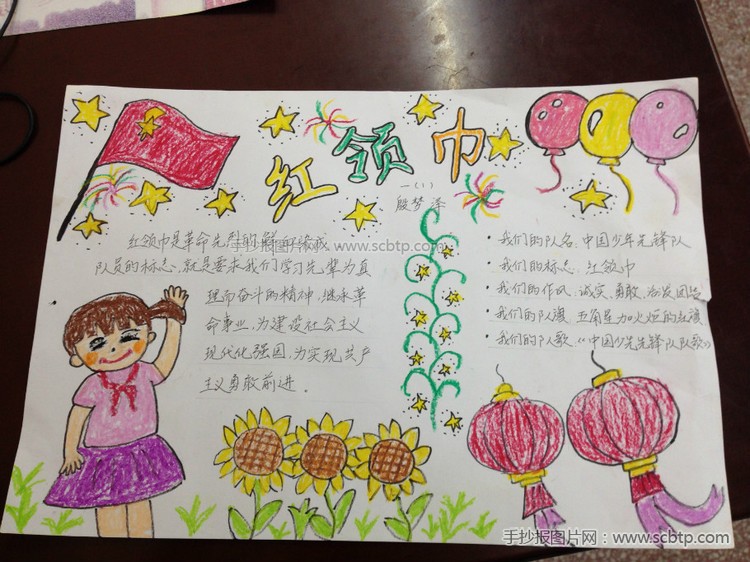 红领巾
一(1)
殷梦泽
红领巾是革命先烈的鲜血染成
队员的标志,就是要求我们学习先辈为真
理而奋斗的精神,继承革
命事业,为建设社会主义
现代化强国,为实现共产
主义勇敢前进。
• 我们的队名:中国少年先锋队
• 我们的标志:红领巾
• 我们的作风:诚实、勇敢、活泼、团结
• 我们的队旗:五角星加火炬的红旗
• 我们的队歌:《中国少先锋队队歌》
手抄报图片网 www.scbtp.com
手抄报图片网:www.scbtp.com